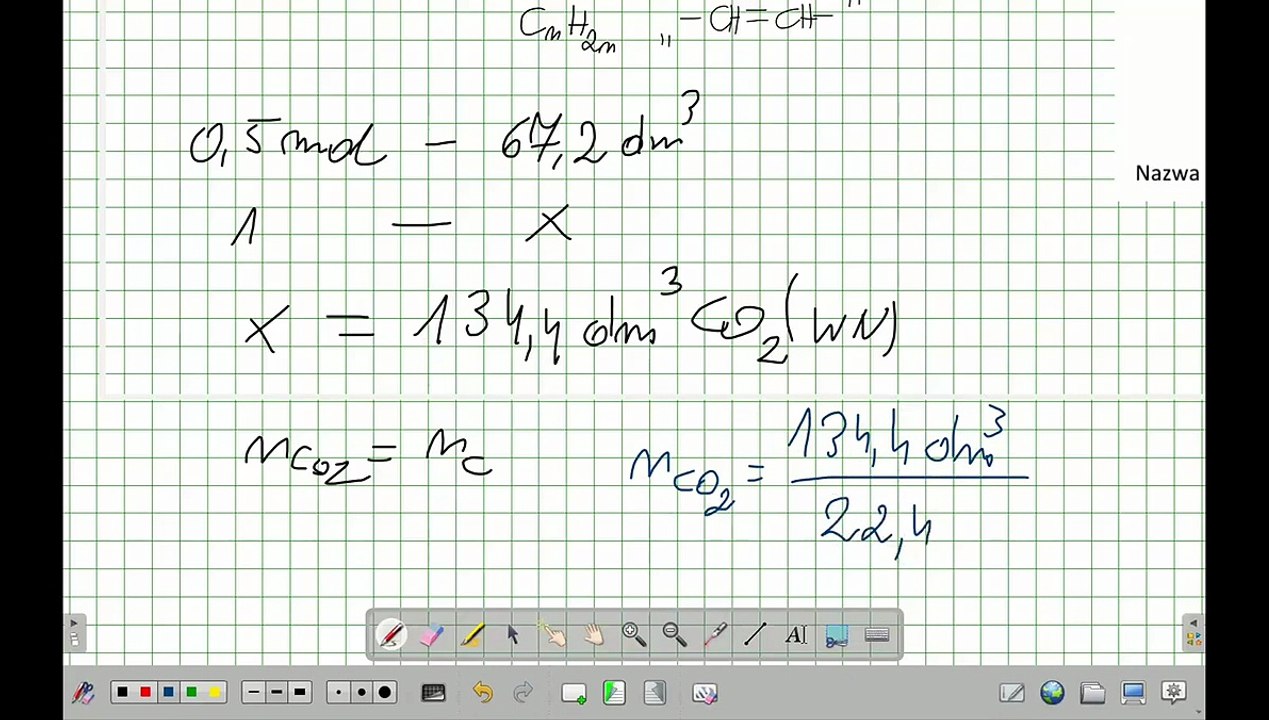 CnH2n „ –CH=CH– "
0,5 mol – 67,2 dm³
Nazwa
1 — x
x = 134,4 dm³ CO₂ (WN)
nCO2 = nC
nCO₂ = 134,4 dm³ / 22,4